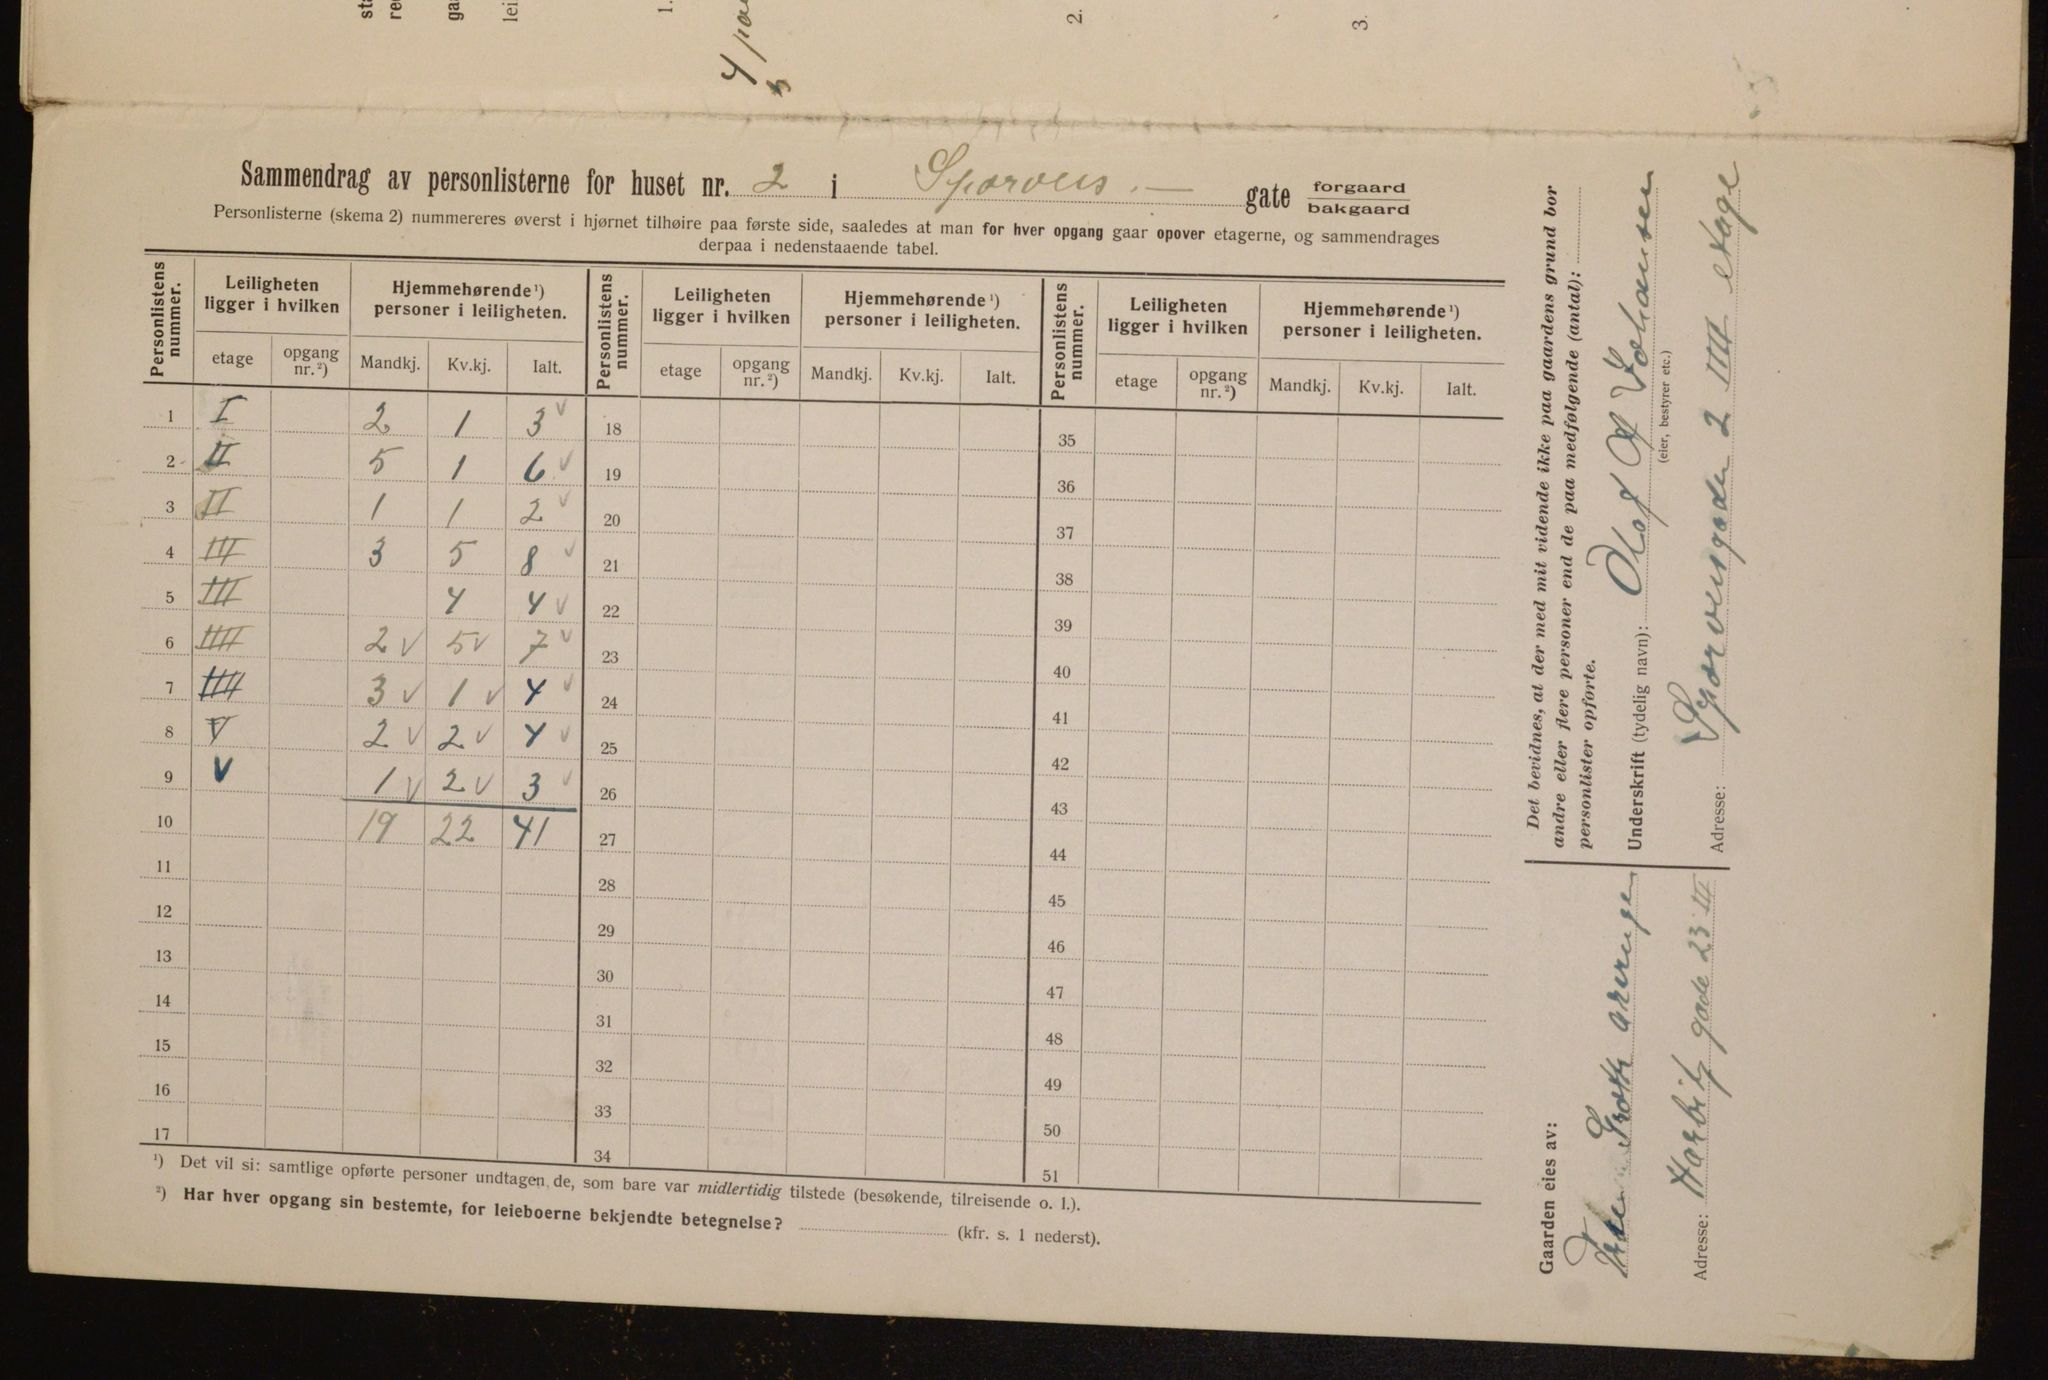 1.
2.
3.
Sammendrag av personlisterne for huset nr. 2 i Sporveis.— gate forgaard
bakgaard
Personlisterne (skema 2) nummereres øverst i hjørnet tilhøire paa første side, saaledes at man for hver opgang gaar opover etagerne, og sammendrages
derpaa i nedenstaaende tabel.
Personlistens nummer. Leiligheten ligger i hvilken Hjemmehørende ¹) personer i leiligheten. Personlistens nummer. Leiligheten ligger i hvilken Hjemmehørende ¹) personer i leiligheten. Personlistens nummer. Leiligheten ligger i hvilken Hjemmehørende ¹) personer i leiligheten.
etage opgang nr.²) Mandkj. Kv.kj. Ialt. etage opgang nr.²) Mandkj. Kv.kj. Ialt. etage opgang nr.²) Mandkj. Kv.kj. Ialt.
1 I 2 1 3 v 18 35
2 II 5 1 6 v 19 36
3 II 1 1 2 v 20 37
4 III 3 5 8 v 21 38
5 III 4 4 v 22 39
6 IIII 2 v 5 v 7 v 23 40
7 IIII 3 v 1 v 4 v 24 41
8 V 2 v 2 v 4 v 25 42
9 V 1 v 2 v 3 v 26 43
10 19 22 41 27 44
11 28 45
12 29 46
13 30 47
14 31 48
15 32 49
16 33 50
17 34 51
¹) Det vil si: samtlige opførte personer undtagen de, som bare var midlertidig tilstede (besøkende, tilreisende o. l.).
²) Har hver opgang sin bestemte, for leieboerne bekjendte betegnelse? (kfr. s. 1 nederst).
Det bevidnes, at der med mit vidende ikke paa gaardens grund bor
andre eller flere personer end de paa medfølgende (antal):
personlister opførte.
Underskrift (tydelig navn): Olaf Johansen
(eier, bestyrer etc.)
Adresse: Sporveisgaden 2 IIII etage
Gaarden eies av:
Adresse: Harbitz gade 23 III